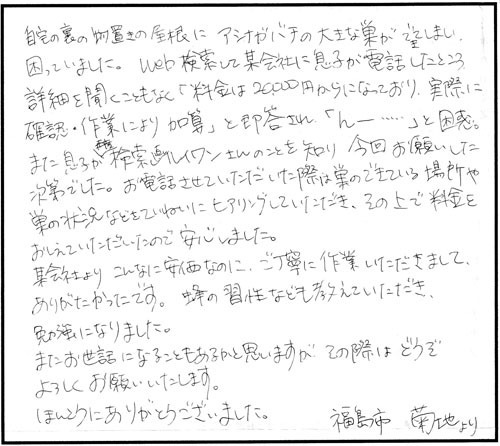 自宅の裏の物置きの屋根に アシナガバチの大きな巣ができてしまい、
困っていました。Web検索して某会社に息子が電話したところ
詳細を聞くこともなく「料金は20,000円からになっており、実際に
確認・作業により加算」と即答され、「んー……」と困惑。
また息子が検索 レイワンさんのことを知り 今回お願いした
次第でした。お電話させていただいた際は巣のできている場所や
巣の状況などをていねいにヒアリングしていただき、その上で料金を
おしえていただいたので安心しました。
某会社より こんなに安価なのに、ご丁寧に作業いただきまして、
ありがたかったです。蜂の習性なども教えていただき、
勉強になりました。
またお世話になることもあるかと思いますが その際は どうぞ
よろしくお願いいたします。
ほんとうにありがとうございました。
福島市 菊地より